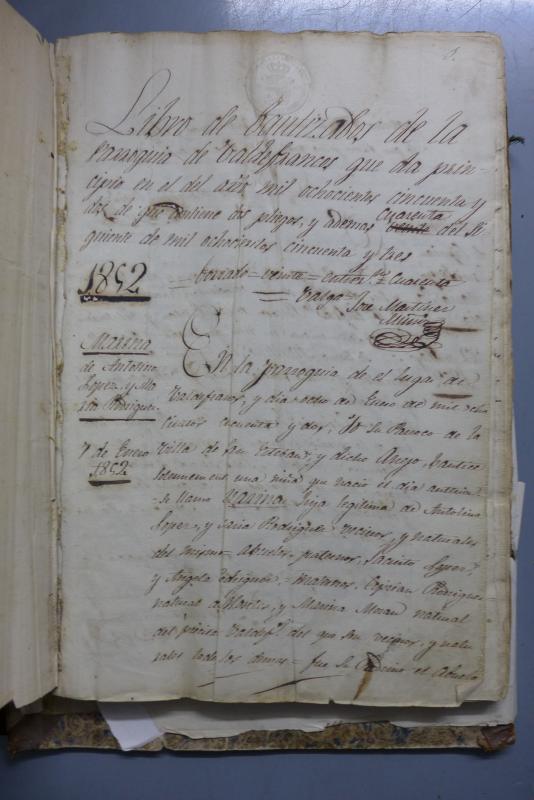 1.
Libro de Bautizados de la
Parroquia de Valdefrances que da prin-
cipio en el del año mil ochocientos cincuenta y
dos de que contiene dos pliegos, y ademas cuarenta del si
guiente de mil ochocientos cincuenta y tres
1852
borrado = veinte = entre r.s Cuarenta
Valga = Jose Martinez
Marina
de Antolino
Lopez, y Ma
ria Rodriguez
7 de Enero
1852
En la parroquia de el lugar de
Valdefrances, y dia ocho de Enero de mil ocho
cientos cincuenta y dos; Yo su Parroco de la
Villa de San Esteban, y dicho Anejo, bautice
solemnemente una niña que nacio el dia anterior
se llamo Marina hija legitima de Antolino
Lopez, y Maria Rodriguez vecinos, y naturales
del mismo = Abuelos, paternos, Jacinto Lopez,
y Angela Rodriguez = maternos, Ciprian Rodriguez
natural de, y Marina Moran natural
del Valdef.s del que son vecinos, y natu
rales todos los demas = fue su Padrino el Abuelo